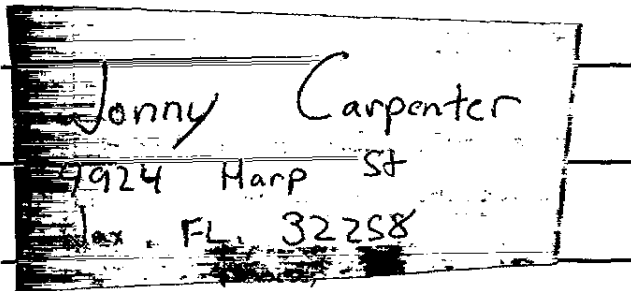 Jonny Carpenter
9924 Harp St
Jax. FL. 32258